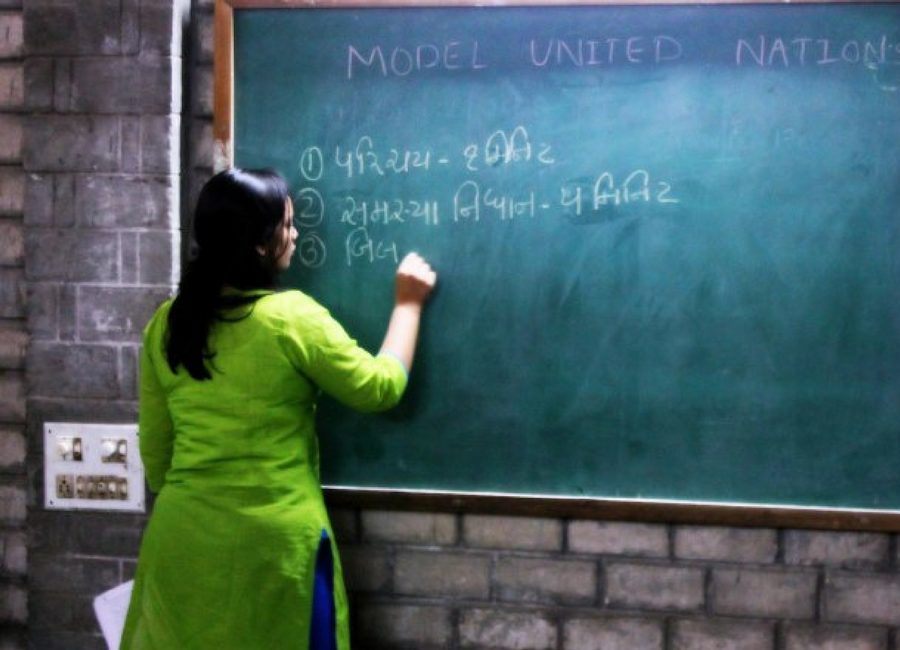 MODEL UNITED NATIONS
① પરિચય - ૨ મિનિટ
② સમસ્યા નિધાન - ૫ મિનિટ
③ બિલ